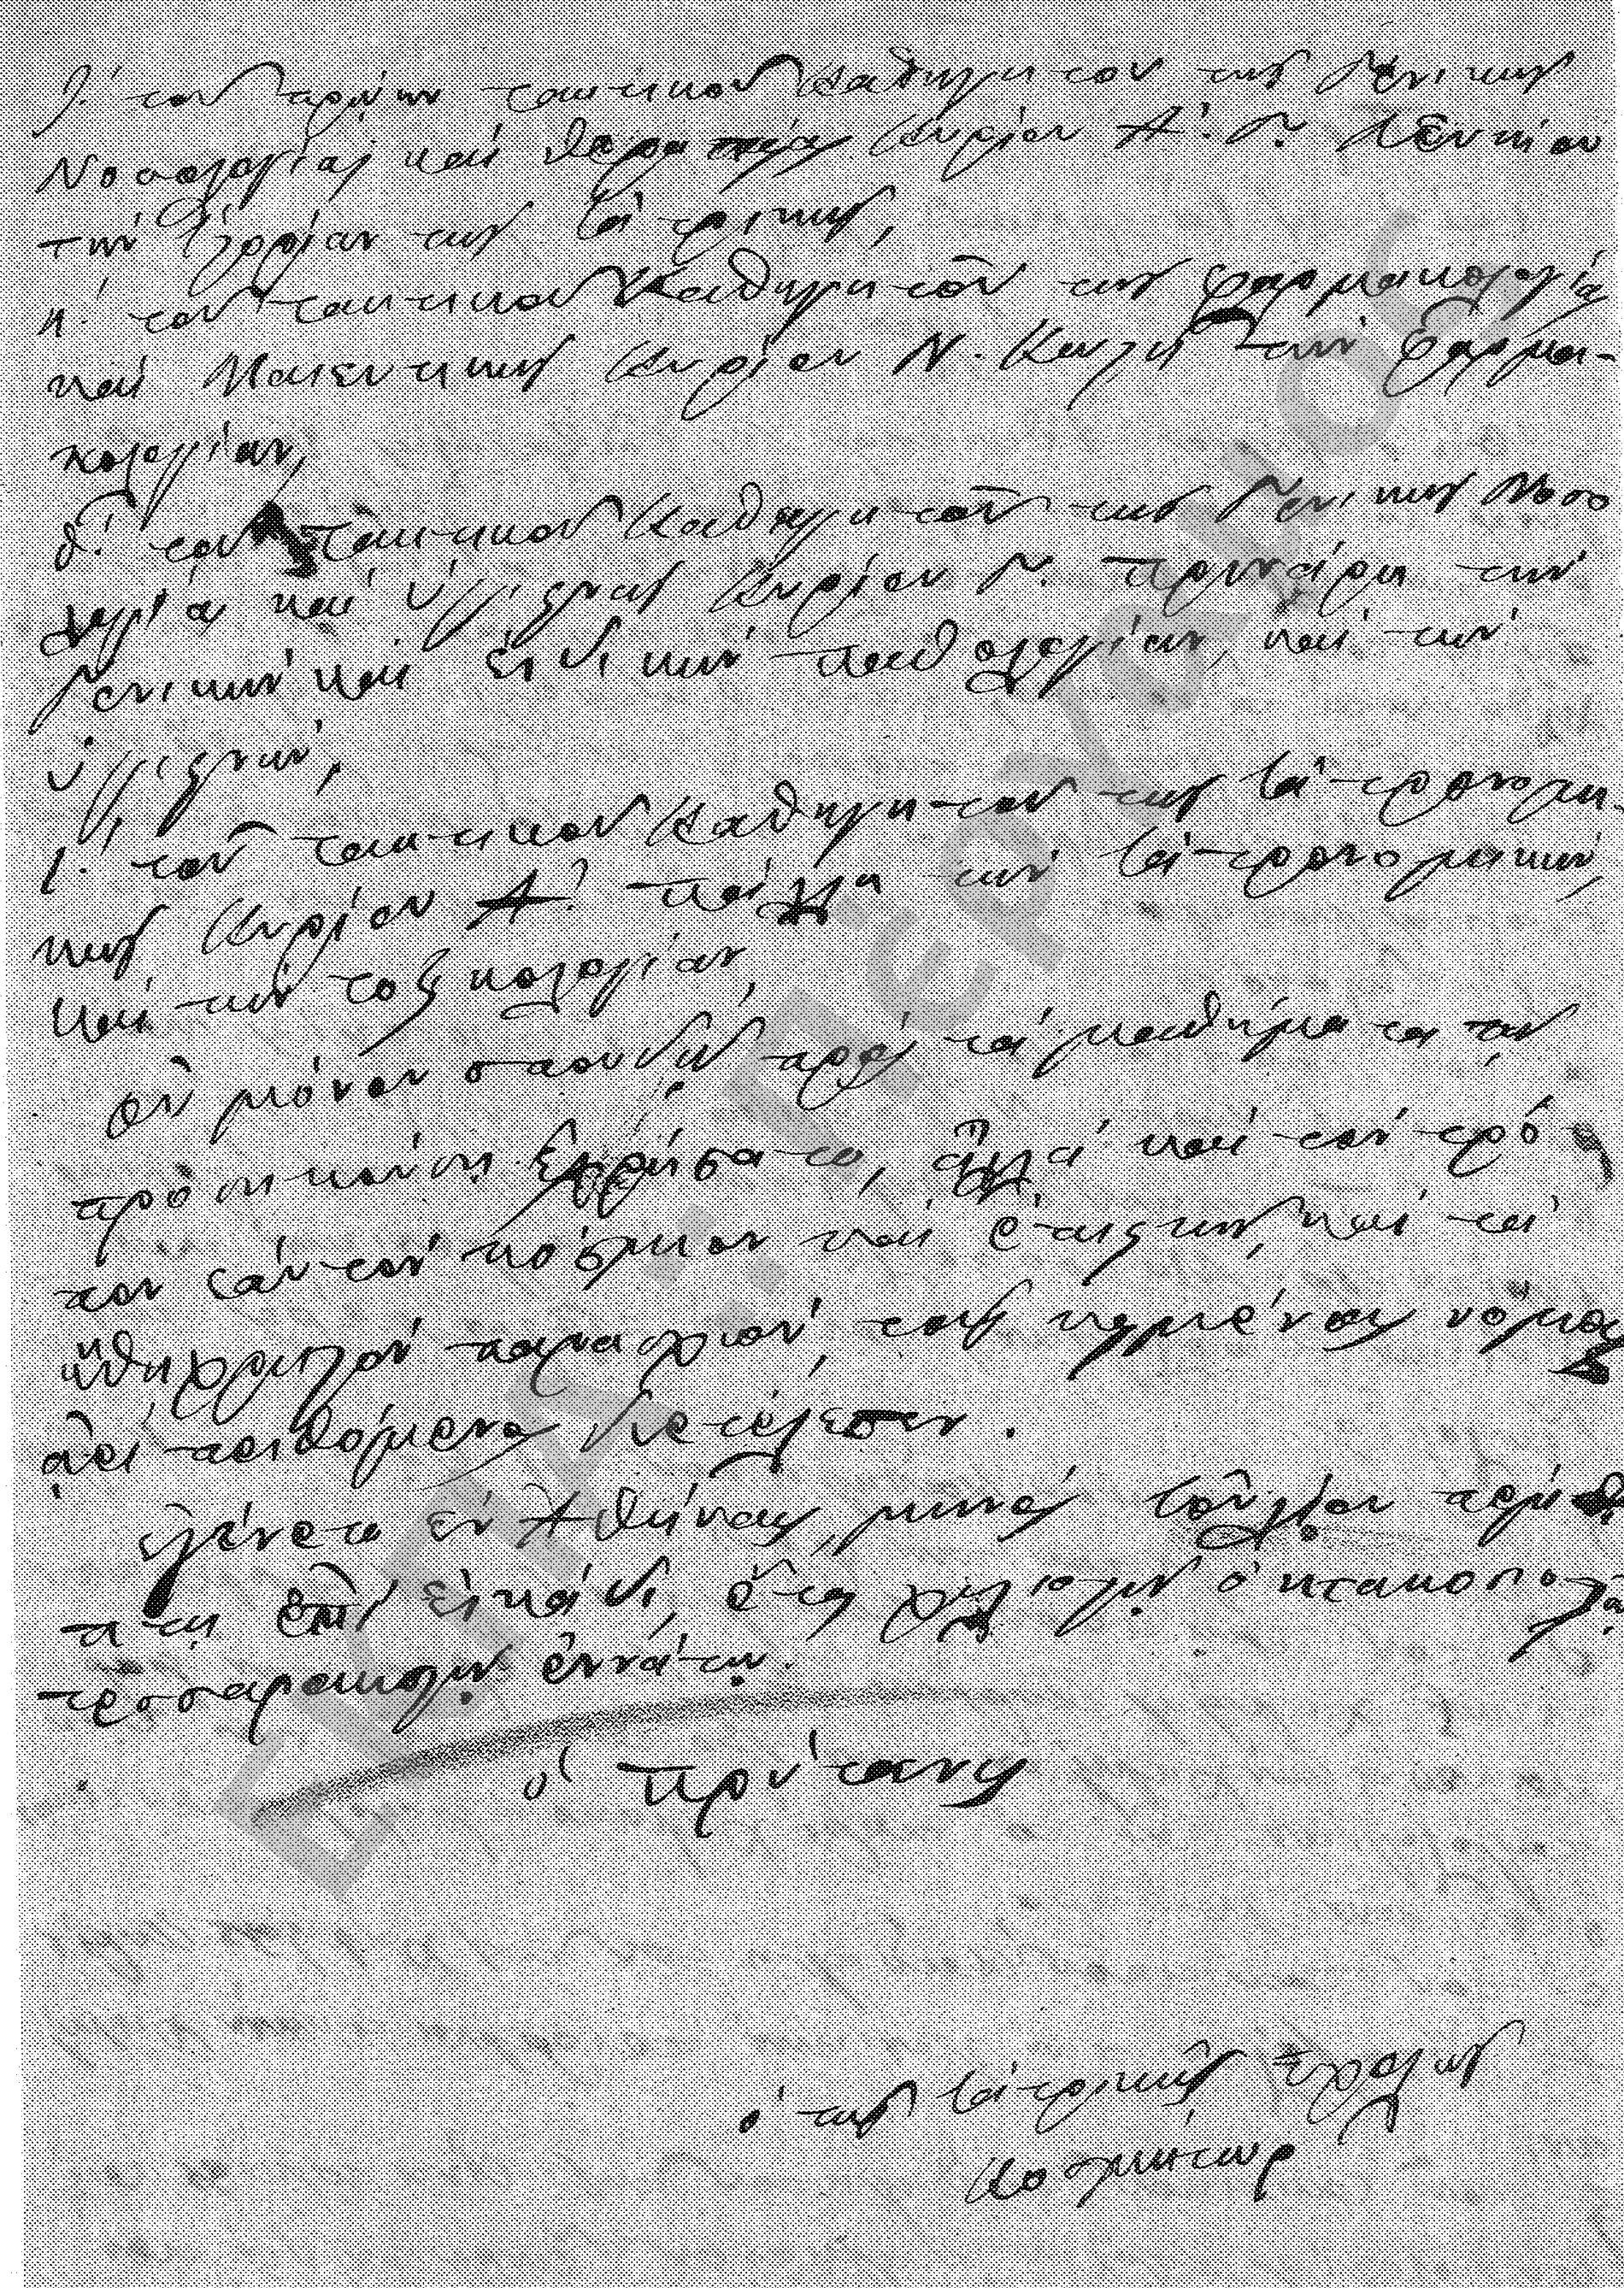 ζ΄. τοῦ πρώην τακτικοῦ Καθηγητοῦ τῆς Γενικῆς
Νοσολογίας καὶ θεραπείας Κυρίου Α. Γ. Λευκίου
τὴν Ἱστορίαν τῆς Ἰατρικῆς,
η΄. τοῦ τακτικοῦ Καθηγητοῦ τῆς Φαρμακολογίας
καὶ Μαιευτικῆς Κυρίου Ν. Κωστῆ τὴν Φαρμα-
κολογίαν,
θ΄. τοῦ τακτικοῦ Καθηγητοῦ τῆς Γενικῆς Νοσο
λογίας καὶ ὑγιεινῆς Κυρίου Γ. Πρινάρη τὴν
Γενικὴν καὶ εἰδικὴν παθολογίαν, καὶ τὴν
ὑγιεινὴν,
ι΄. τοῦ τακτικοῦ Καθηγητοῦ τῆς Ἰατρονομι-
κῆς Κυρίου Α. Πάλλη τὴν Ἰατρονομικὴν,
καὶ τὴν τοξικολογίαν,
οὐ μόνον σπουδῇ πρὸς τὰ μαθήματα τῇ
προσηκούσῃ ἐχρήσατο, ἀλλὰ καὶ τὸν τρό-
πον ἑαυτὸν κόσμιον καὶ ἐπιεικῆ, καὶ τὰ
ἤθη χρηστὸν παρασχὼν, τοῖς κειμένοις νόμοις
ἀεὶ πειθόμενος διετέλεσεν.
ἐγένετο ἐν Ἀθήναις, μηνὸς Ἰουλίου πέμ
πτῃ ἐπὶ εἰκάδι, ἔτει χιλιοστῷ ὀκτακοσιοστῷ
τεσσαρακοστῷ ἐννάτῳ.
ὁ Πρύτανις
ὁ τῆς Ἰατρικῆς Σχολῆς
Κοσμήτωρ
ΕΘΝΙΚΟ